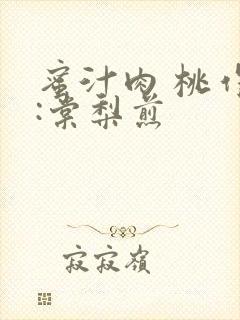 蜜汁肉桃 作
:棠梨煎
寂寂嶺